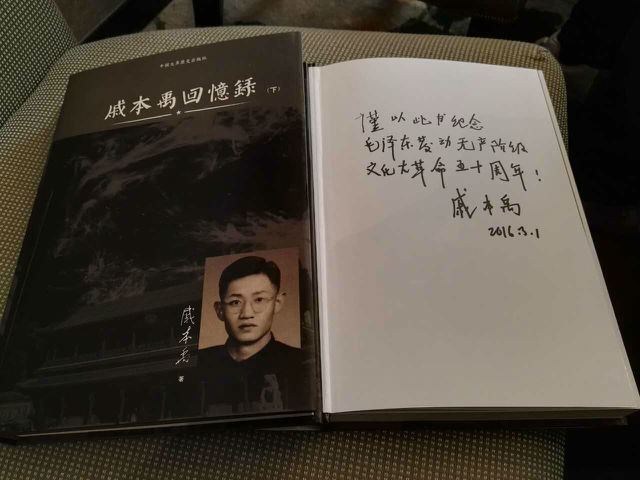 中国文革历史出版社
戚本禹回憶録（下）
戚本禹
著
谨以此书纪念
毛泽东发动无产阶级
文化大革命五十周年！
戚本禹
2016.3.1